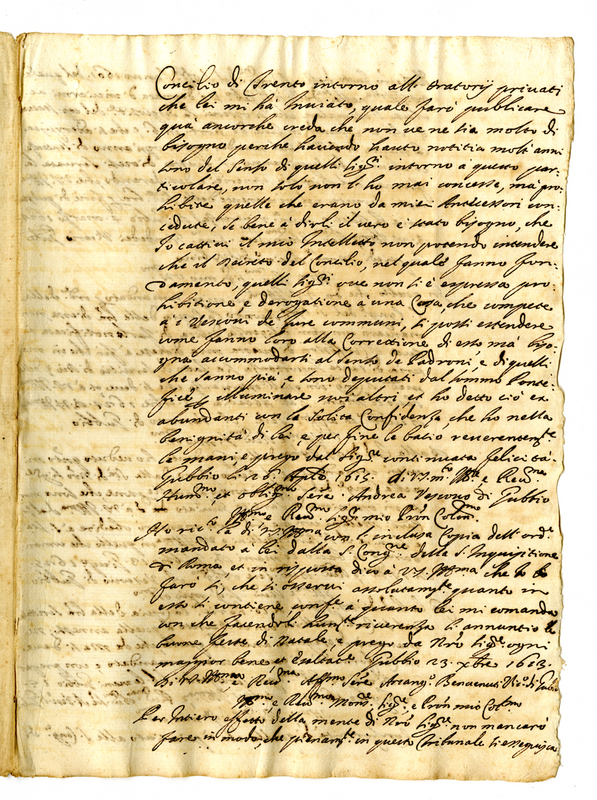 Concilio di Trento intorno alli Oratorij privati
che lei mi hà Inviato, quale farò publicare
qua ancorche creda che non ve ne sia molto di
bisogno perche havendo hauto notitia molti anni
sono del senso di quelli Sig.ri intorno a questo par-
ticolare, non solo non l'ho mai concesse, mà pro-
hibite quelle che erano da miei Antecessori con-
cedute, se bene à dirli il vero è stato bisogno, che
Io cattivi il mio Intelletto non potendo intendere
che il Decreto del Concilio, nel quale fanno fon-
damento, quelli Sig.ri ove non li è espressa pro-
hibitione e derogatione à una Cosa, che compete
à i Vescovi de Jure communi, si possi estendere
come fanno loro alla Correttione di esto mà biso-
gna accommodarsi al senso de Padroni, e di quelli
che sanno più e sono deputati dal sommo Ponte-
fice p illuminare noi altri et ho detto ciò ex
abundanti con la solita Confidenza che ho nella
benignità di lei e per fine le bacio reverentem.te
le mani, e prego dal Sig.re continuata felicità.
Gubbio li 26 1615. di V.S. m.to Ill.re e Rev.ma
Hum.o et oblig.o Ser.re Andrea Vescovo di Gubbio
Ill.mo e Rev.mo Sig.re mio Pron Colen.mo
Ho ric.to la di V.S. Ill.ma con l'inclusa Copia dell'ord.e
mandato à lei dalla S. Cong.ne della S. Inquisitione
di Roma, et in risposta dico à V.S. Ill.ma che Io
farò si, che si osservi assolutam.te quanto in
esso si contiene conf.e a quanto lei mi comanda
con che facendoli hum.te riverenza li annuntio le
buone feste di Natale, e prego da Nro Sig.re ogni
maggior bene, et esaltat.e Gubbio 23 Xbre 1663.
Di V.S. Ill.ma e Rev.ma Aff.mo Ser.re Arcang.o Benvenuti Vic.o di Gubbio
Ill.mo e Rev.mo Mons.re Sig.re e Pron mio Col.mo
Per Intiero effetto della mente di Nro Sig.re non mancarò
fare in modo, che pienam.te in questo Tribunale si esseguisca